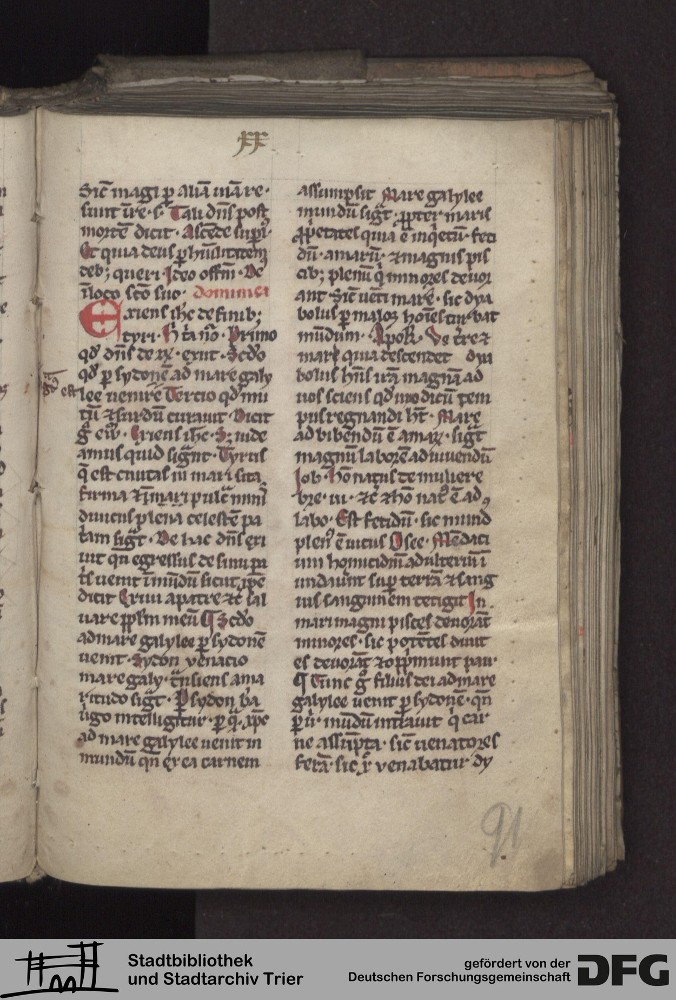 xx
Sic̄ magi ꝑ aliā uiā re·
sunt ur̄e· s· Tali dn̄s post
mortē dicit · Ascēde suꝑi⁹
Et quia deus ꝑ humilitatem
deb; queri · Ideo offm̄ · De
us in loco sc̄o suo · dominica
Exiens ihc̄ de finib;
tyri · H
qd̕ dn̄s de
qd̕ ꝑ sydonē ad mare galy
lee uenire Tercio qd̕ mu
tū ⁊ surdū curauit · Dicit
g̊ eu̾ · Exiens ihc̄ · uide
amus quid signt̄ · Tyrus
q̄ est ciuitas in mari sita
firma ⁊ in mari pulc̄
diuicus plena celestē pa
t̾am sigt̄ · De hac dn̄s exi
uit qn̄ egressus de sinu pa
tis uenit ī mūdū sicut ip̄e
dicit Exiui a patre ⁊c̄ sal
uare pp̄lm meū ¶ Scd̕o
ad mare galylee ꝑ sydonē
uenit · Sydon venacio
mare galy· t̾nsiens ama
ritudo sigt̄ · P̱ sydon
intelligitur · ꝑ q̄ · xp̄c
ad mare galylee uenit in
mundū qn̄ ex ea carnem
assumpsit Mare galylee
mundū sigt̄ · ꝓpter maris
ꝓp̾etates quia ē inq̾etū · feti
dū · amarū · ⁊ magnis pis
cib; plenū q̾ minores deuor
ant Sic̄ uēti mare · sic dya
bolus ꝑ maloꝝ hoīes
mūdum · Apok̄ · Ve tr̄e ⁊
mari quia descendet dya
bolus hn̄s irā magnā ad
uos sciens qd̕ modicū tem
pus regnandi ht̄ · Mare
ad bibendū ē amaꝝ · sigt̄
magnū laborē ad uiuendū
Iob · Hō natus de muliere
bre· ui · ⁊c̄ ⁊ hō nat⁹ ē ad
labo· Est fetidū · sic mund⁹
plen⁹ ē uiciis Osee · Mēdaci
um homicidiū adulteriū ī
undauit suꝑ terrā ⁊ sang
uis sanguinem tetigit In
mari magni pisces deuorāt
minores · sic potētes diuit
es deuorāt ⁊ opp̄munt pau·
¶ Tunc g̊ filius dei ad mare
galylee uenit ꝑ sydonē · qn̄
ꝑ u̾· mūdū intrauit q̾ car
ne assūpta · sic̄ uenatores
ferā · sic xp̄ venabatur dy
91
Stadtbibliothek
und Stadtarchiv Trier
gefördert von der
Deutschen Forschungsgemeinschaft
DFG